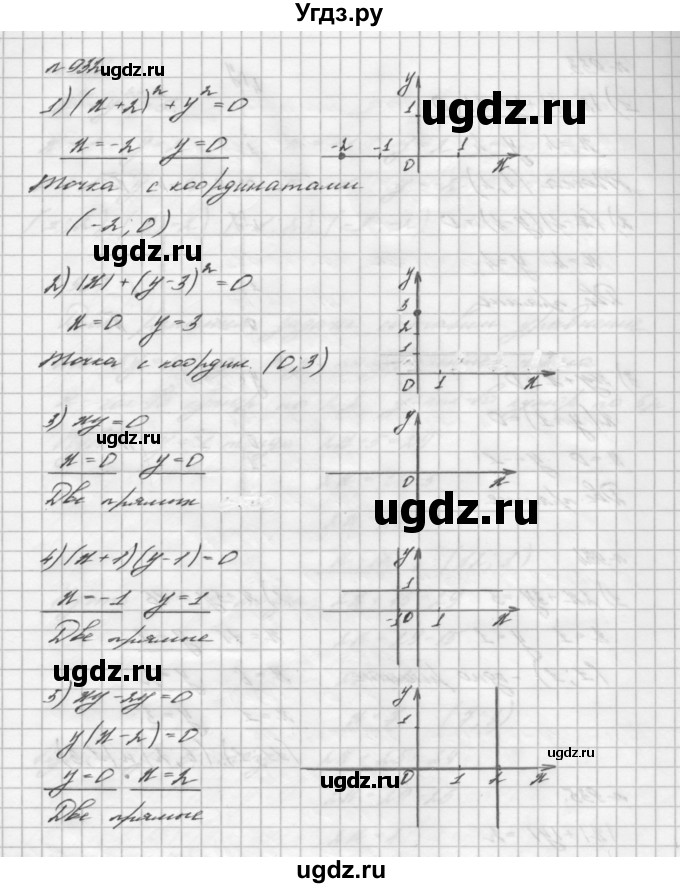 Угдз.ру
n 932
ugdz.ru
1) (x+2)² + y² = 0
x = -2 y = 0
Точка с координатами
(-2; 0)
y
1
-2 -1 0 1 x
ugdz.ru
ugdz.ru
2) |x| + (y-3)² = 0
x = 0 y = 3
Точка с координ. (0; 3)
y
3
2
1
0 1 x
3) xy = 0
ugdz.ru
x = 0 y = 0
Две прямых
y
0 x
ugdz.ru
4) (x+1)(y-1) = 0
x = -1 y = 1
Две прямые
y
1
-1 0 1 x
ugdz.ru
5) xy - 2y = 0
y(x-2) = 0
y = 0 x = 2
Две прямые
y
1
0 1 2 x
ugdz.ru
ugdz.ru
ugdz.ru
ugdz.ru